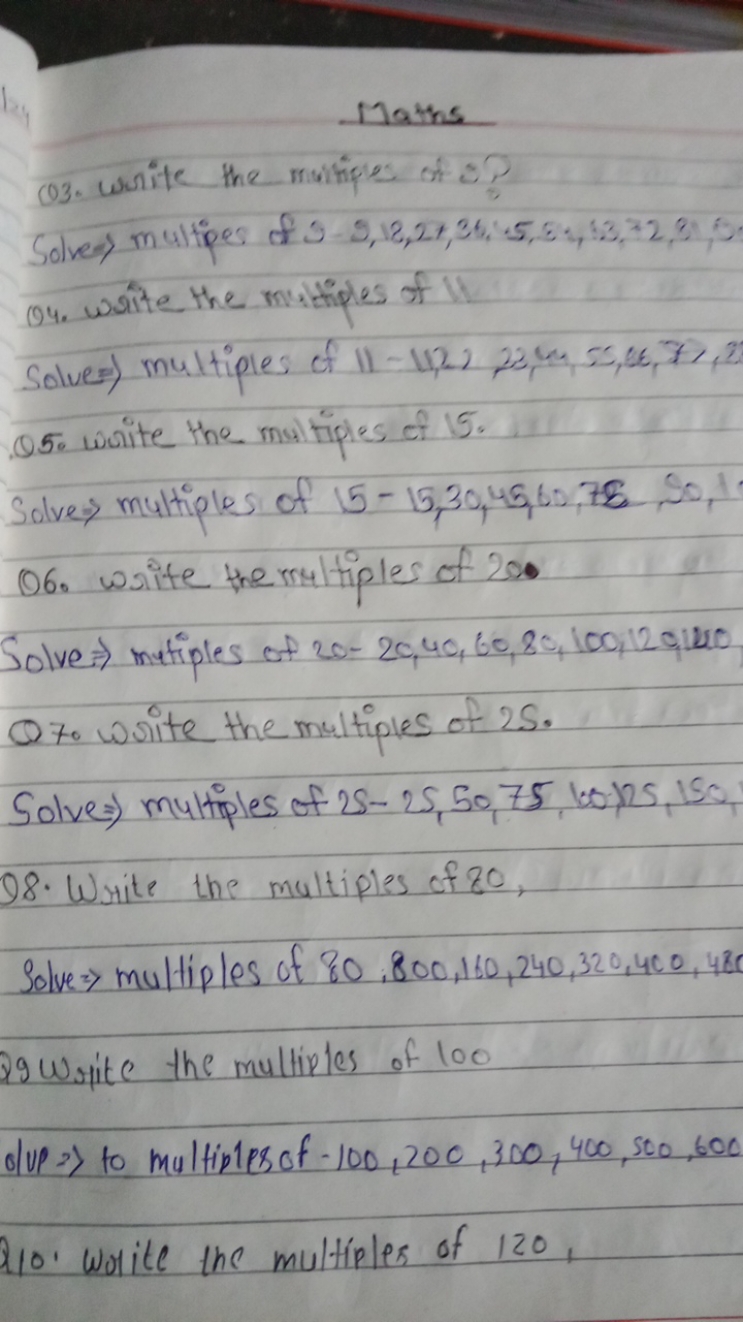 Maths
Q3. write the multiples of 9?
Solve⇒ multipes of 9 - 9,18,27,36,45,54,63,72,81,
Q4. write the multiples of 11
Solve⇒ multiples of 11 - 11,22,33,44,55,66,77,
Q5. write the multiples of 15.
Solve⇒ multiples of 15 - 15,30,45,60,75,90,1
Q6. write the multiples of 20.
Solve⇒ mutiples of 20 - 20,40,60,80,100,120,140,
Q7. write the multiples of 25.
Solve⇒ multiples of 25 - 25,50,75,100,125,150,
Q8. Write the multiples of 80,
Solve⇒ multiples of 80,800,160,240,320,400,480
Q9 Write the multiples of 100
olve⇒ to multiples of - 100,200,300,400,500,600
Q10. Write the multiples of 120,